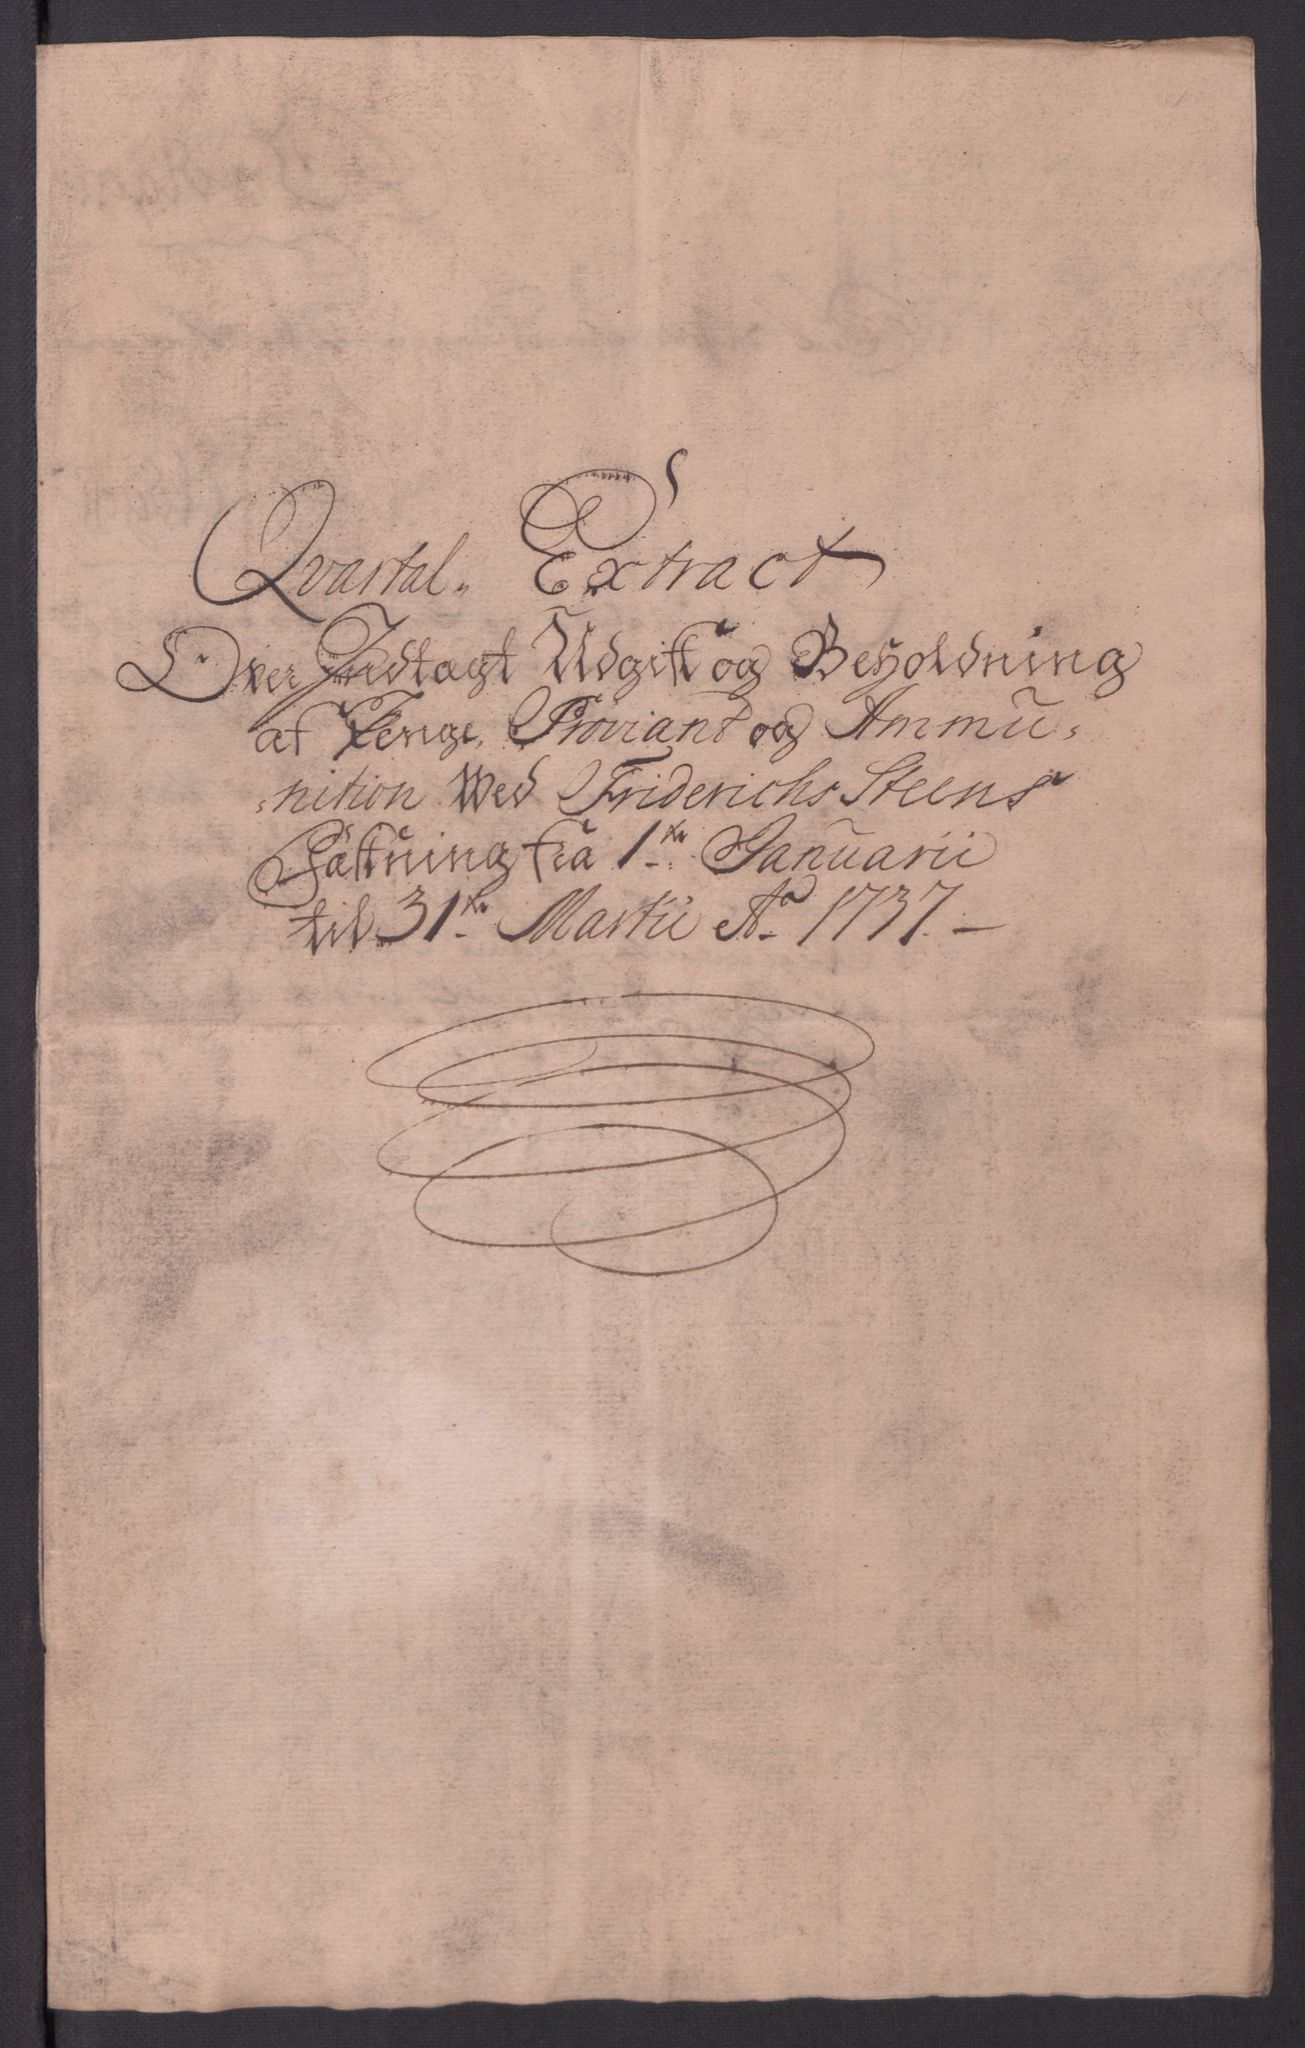 Qvartal„ Extract
Over Indtægt Udgift og Beholdning
af Penge, Proviant og Ammu„
„nition Wed Friderichs Steens
Fæstning fra 1ste Januarii
til 31te Martii Ao 1737. —